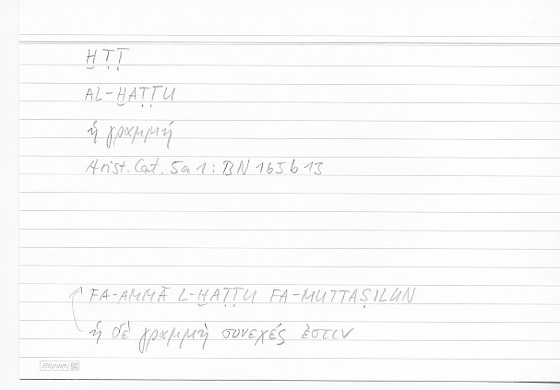 ḪṬṬ
AL-ḪAṬṬU
ἡ γραμμή
Arist. Cat. 5a1 : BN 165b13
FA-AMMĀ L-ḪAṬṬU FA-MUTTAṢILUN
ἡ δὲ γραμμὴ συνεχές ἐστιν